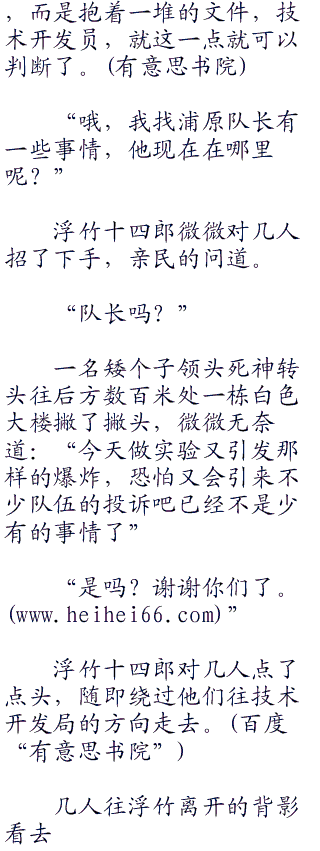 ，而是抱着一堆的文件，技
术开发员，就这一点就可以
判断了。(有意思书院)
“哦，我找浦原队长有
一些事情，他现在在哪里
呢？”
浮竹十四郎微微对几人
招了下手，亲民的问道。
“队长吗？”
一名矮个子领头死神转
头往后方数百米处一栋白色
大楼撇了撇头，微微无奈
道：“今天做实验又引发那
样的爆炸，恐怕又会引来不
少队伍的投诉吧已经不是少
有的事情了”
“是吗？谢谢你们了。
(www.heihei66.com)”
浮竹十四郎对几人点了
点头，随即绕过他们往技术
开发局的方向走去。(百度
“有意思书院”)
几人往浮竹离开的背影
看去